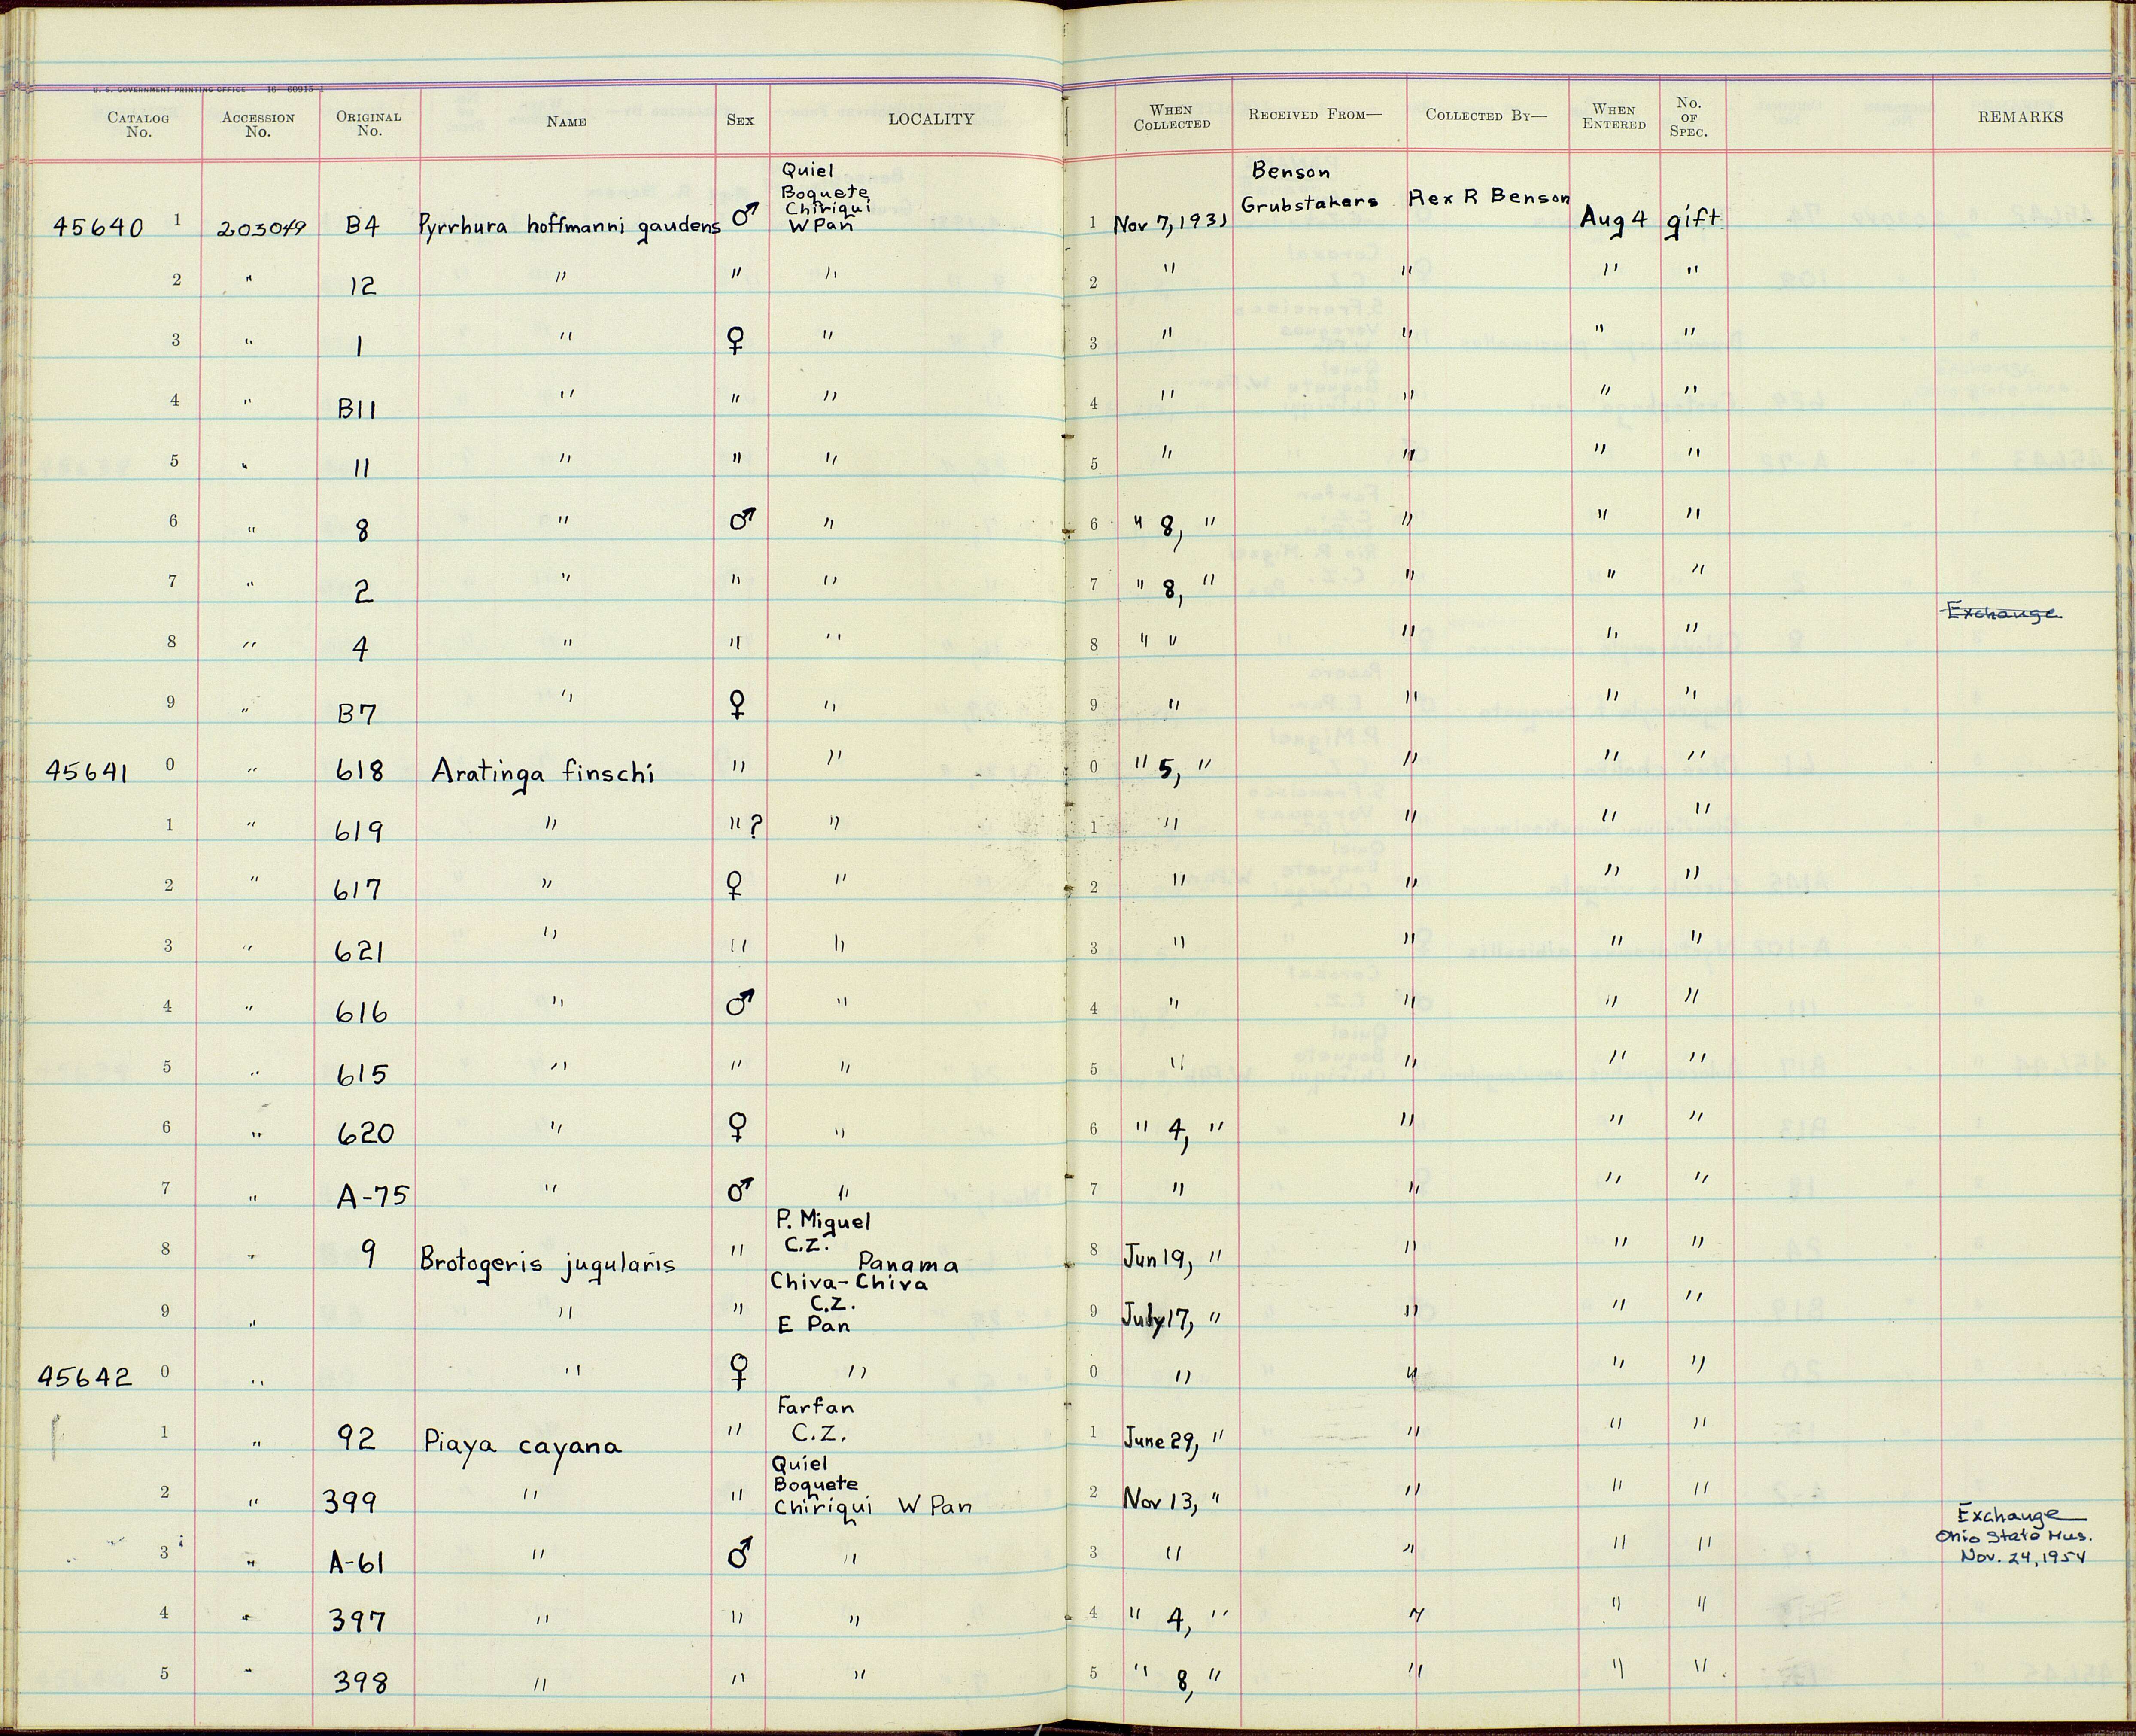 U. S. GOVERNMENT PRINTING OFFICE 16—60915-1
CATALOG No. ACCESSION No. ORIGINAL No. NAME SEX LOCALITY WHEN COLLECTED RECEIVED FROM— COLLECTED BY— WHEN ENTERED No. OF SPEC. REMARKS
45640 1 203049 B4 Pyrrhura hoffmanni gaudens ♂ Quiel Boquete Chiriqui W Pan 1 Nov 7, 1931 Benson Grubstakers Rex R Benson Aug 4 gift
2 " 12 " " " 2 " " " "
3 " 1 " ♀ " 3 " " " "
4 " B11 " " " 4 " " " "
5 " 11 " " " 5 " " " "
6 " 8 " ♂ " 6 " 8, " " " "
7 " 2 " " " 7 " 8, " " " "
Exchange
8 " 4 " " " 8 " " " " "
9 " B7 " ♀ " 9 " " " "
45641 0 " 618 Aratinga finschi " " 0 " 5, " " " "
1 " 619 " " ? " 1 " " " "
2 " 617 " ♀ " 2 " " " "
3 " 621 " " " 3 " " " "
4 " 616 " ♂ " 4 " " " "
5 " 615 " " " 5 " " " "
6 " 620 " ♀ " 6 " 4, " " " "
7 " A-75 " ♂ " 7 " " " "
8 " 9 Brotogeris jugularis " P. Miguel C.Z. Panama 8 Jun 19, " " " "
9 " " " Chiva-Chiva C.Z. E Pan 9 July 17, " " " "
45642 0 " " ♀ " 0 " " " "
1 " 92 Piaya cayana " Farfan C.Z. 1 June 29, " " " "
2 " 399 " " Quiel Boquete Chiriqui W Pan 2 Nov 13, " " " "
3 " A-61 " ♂ " 3 " " " " Exchange Ohio State Mus. Nov. 24, 1954
4 " 397 " " " 4 " 4, " " " "
5 " 398 " " " 5 " 8, " " " "